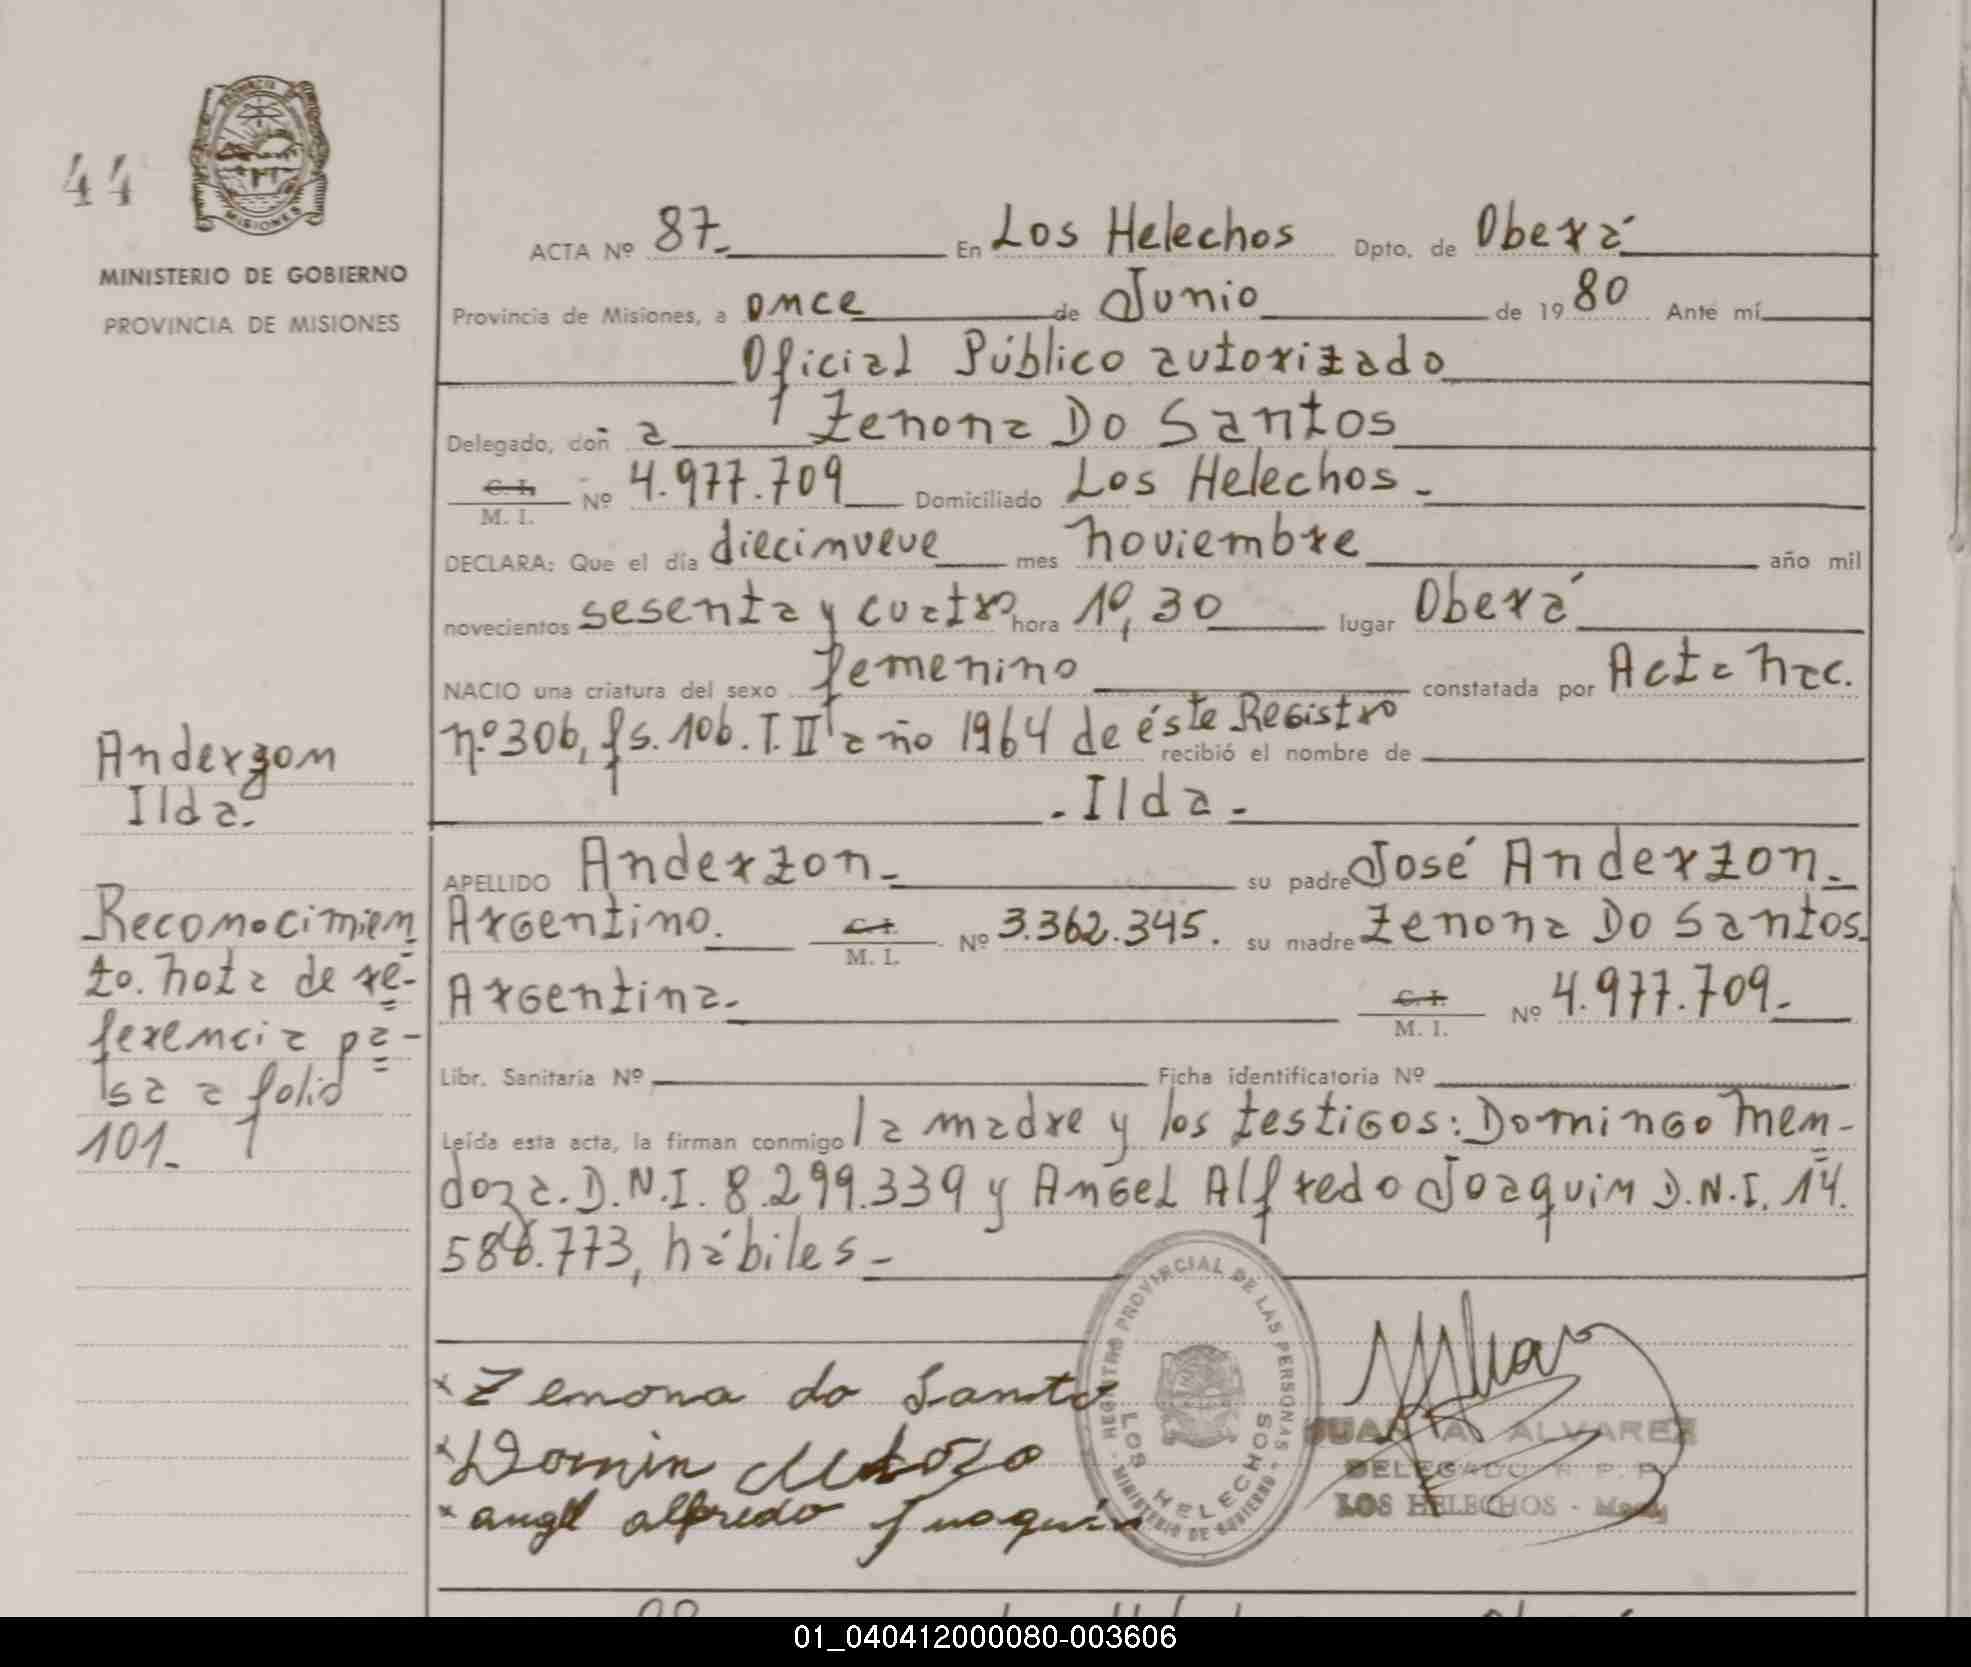 44
MISIONES
MINISTERIO DE GOBIERNO
PROVINCIA DE MISIONES
ACTA Nº 87. En Los Helechos Dpto. de Oberá
Provincia de Misiones, a once de Junio de 1980 Ante mí
Oficial Público autorizado
Delegado, doñ a Zenona Do Santos
C. I. M. I. Nº 4.977.709 Domiciliado Los Helechos.
DECLARA: Que el día diecinueve mes noviembre año mil
novecientos sesenta y cuatro hora 10,30 lugar Oberá
NACIO una criatura del sexo femenino constatada por Acta nac.
nº 306, fs. 106. T. II año 1964 de éste Registro recibió el nombre de
. Ilda .
APELLIDO Anderzon. su padre José Anderzon.
Argentino. C. I. M. I. Nº 3.362.345. su madre Zenona Do Santos.
Argentina. C. I. M. I. Nº 4.977.709.
Libr. Sanitaria Nº Ficha identificatoria Nº
Leída esta acta, la firman conmigo la madre y los testigos: Domingo Men-
doza. D.N.I. 8.299.339 y Angel Alfredo Joaquim D.N.I. 14.
586.773, hábiles.
Anderzon
Ilda.
Reconocimien
to. nota de re-
ferencia pa-
sa a folio
101.
x Zenona do Santo
x Domin
x angel alfredo Juaquin
REGISTRO PROVINCIAL DE LAS PERSONAS
LOS HELECHOS
MINISTERIO DE GOBIERNO
JUAN A. ALVAREZ
DELEGADO R. P. P.
LOS HELECHOS -
01_040412000080-003606